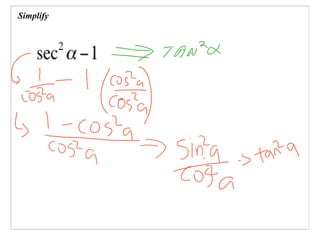 Simplify
sec² α − 1 ⟹ TAN²α
1/cos²a − 1 (cos²a/cos²a)
(1 − cos²a)/cos²a ⇒ sin²a/cos²a → tan²a